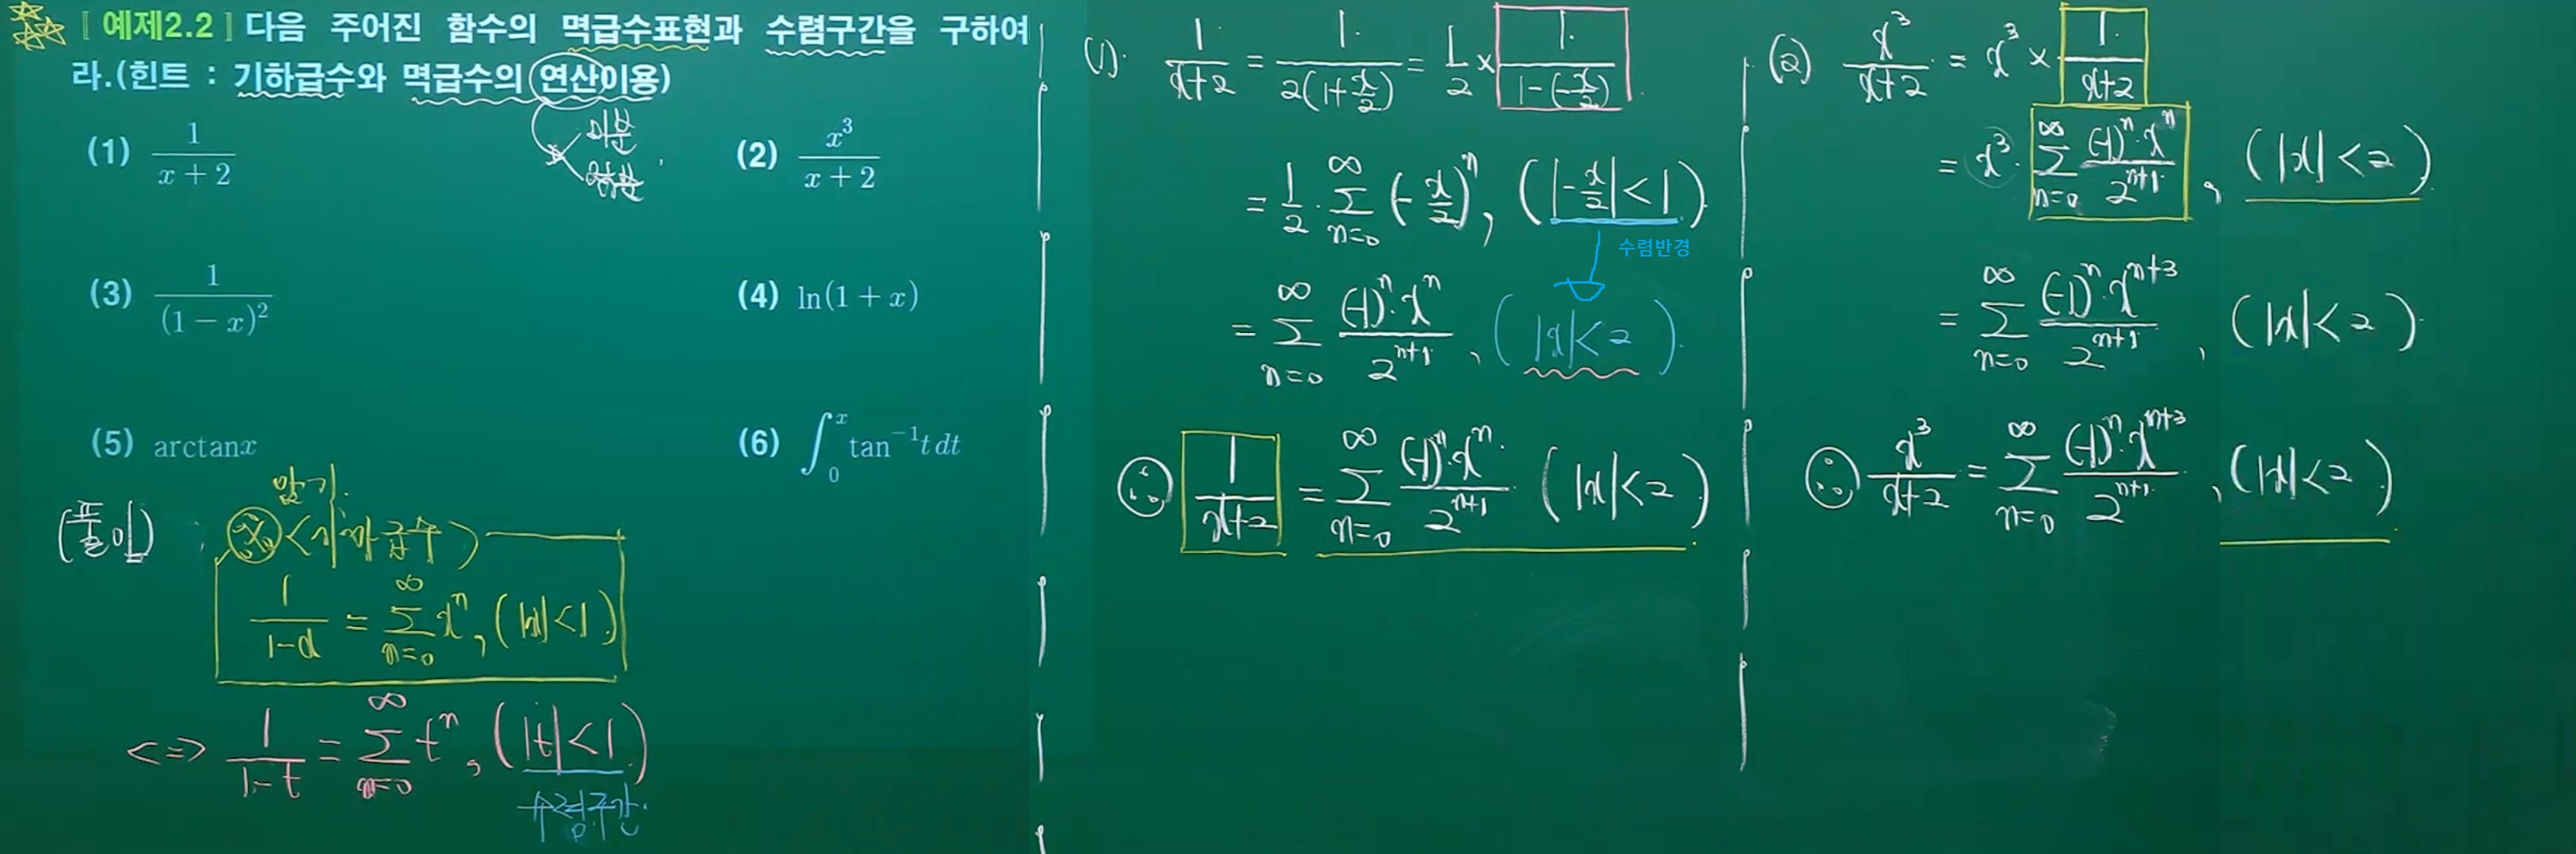 [예제2.2] 다음 주어진 함수의 멱급수표현과 수렴구간을 구하여
라.(힌트 : 기하급수와 멱급수의 연산이용)
미분
적분
(1) 1/(x+2)
(2) x³/(x+2)
(3) 1/(1-x)²
(4) ln(1+x)
(5) arctanx
(6) ∫₀ˣ tan⁻¹t dt
암기.
(풀이) ※ <기하급수>
1/(1-x) = ∑_{n=0}^{∞} xⁿ, (|x|<1)
<=> 1/(1-t) = ∑_{n=0}^{∞} tⁿ, (|t|<1)
수렴구간.
(1). 1/(x+2) = 1/(2(1+x/2)) = 1/2 × 1/(1-(-x/2))
= 1/2 · ∑_{n=0}^{∞} (-x/2)ⁿ, (|-x/2|<1)
수렴반경
= ∑_{n=0}^{∞} (-1)ⁿ·xⁿ/2ⁿ⁺¹, (|x|<2)
∴ 1/(x+2) = ∑_{n=0}^{∞} (-1)ⁿ·xⁿ/2ⁿ⁺¹ (|x|<2)
(2) x³/(x+2) = x³ × 1/(x+2)
= x³· ∑_{n=0}^{∞} (-1)ⁿ·xⁿ/2ⁿ⁺¹, (|x|<2)
= ∑_{n=0}^{∞} (-1)ⁿ·xⁿ⁺³/2ⁿ⁺¹, (|x|<2)
∴ x³/(x+2) = ∑_{n=0}^{∞} (-1)ⁿ·xⁿ⁺³/2ⁿ⁺¹, (|x|<2)